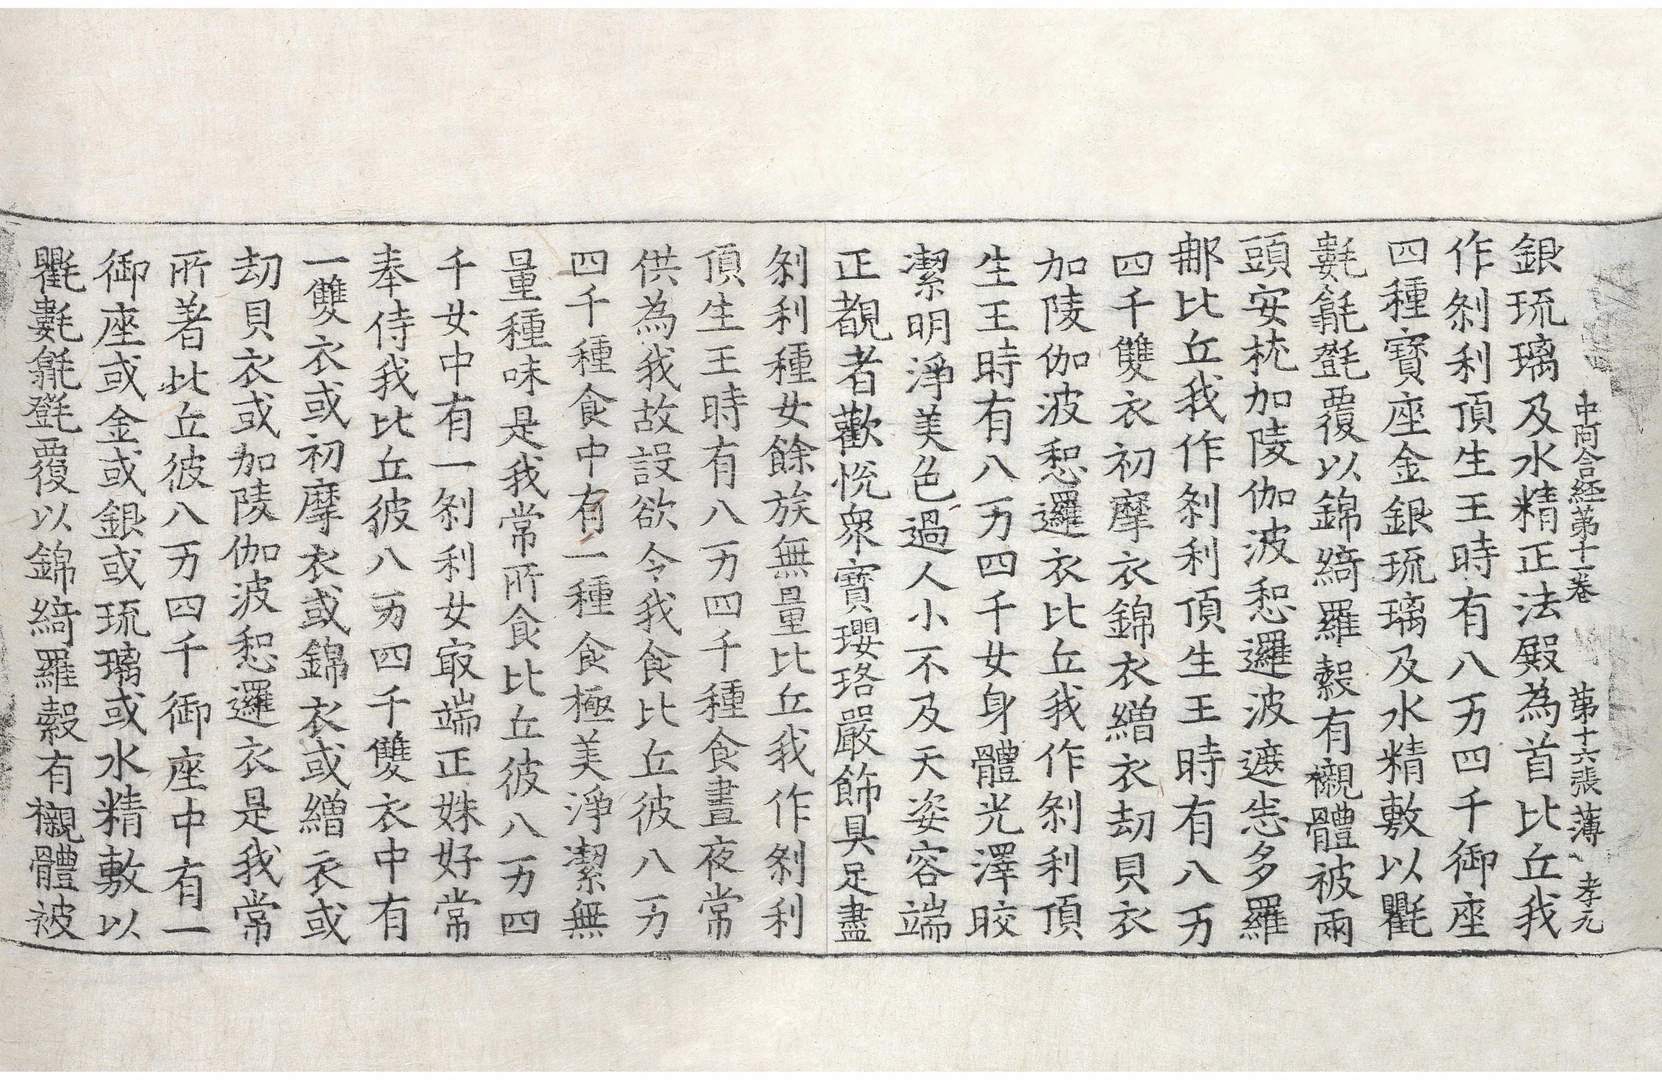 中阿含經第十一卷　第十六張　薄　孝元
銀琉璃及水精正法殿為首比丘我
作剎利頂生王時有八万四千御座
四種寶座金銀琉璃及水精敷以氍
氀毾㲪覆以錦綺羅縠有襯體被兩
頭安枕加陵伽波惒邏波遮悉多羅
那比丘我作剎利頂生王時有八万
四千雙衣初摩衣錦衣繒衣劫貝衣
加陵伽波惒邏衣比丘我作剎利頂
生王時有八万四千女身體光澤晈
潔明淨美色過人小不及天姿容端
正覩者歡悅衆寶瓔珞嚴飾具足盡
剎利種女餘族無量比丘我作剎利
頂生王時有八万四千種食晝夜常
供為我故設欲令我食比丘彼八万
四千種食中有一種食極美淨潔無
量種味是我常所食比丘彼八万四
千女中有一剎利女冣端正姝好常
奉侍我比丘彼八万四千雙衣中有
一雙衣或初摩衣或錦衣或繒衣或
劫貝衣或加陵伽波惒邏衣是我常
所著比丘彼八万四千御座中有一
御座或金或銀或琉璃或水精敷以
氍氀毾㲪覆以錦綺羅縠有襯體被